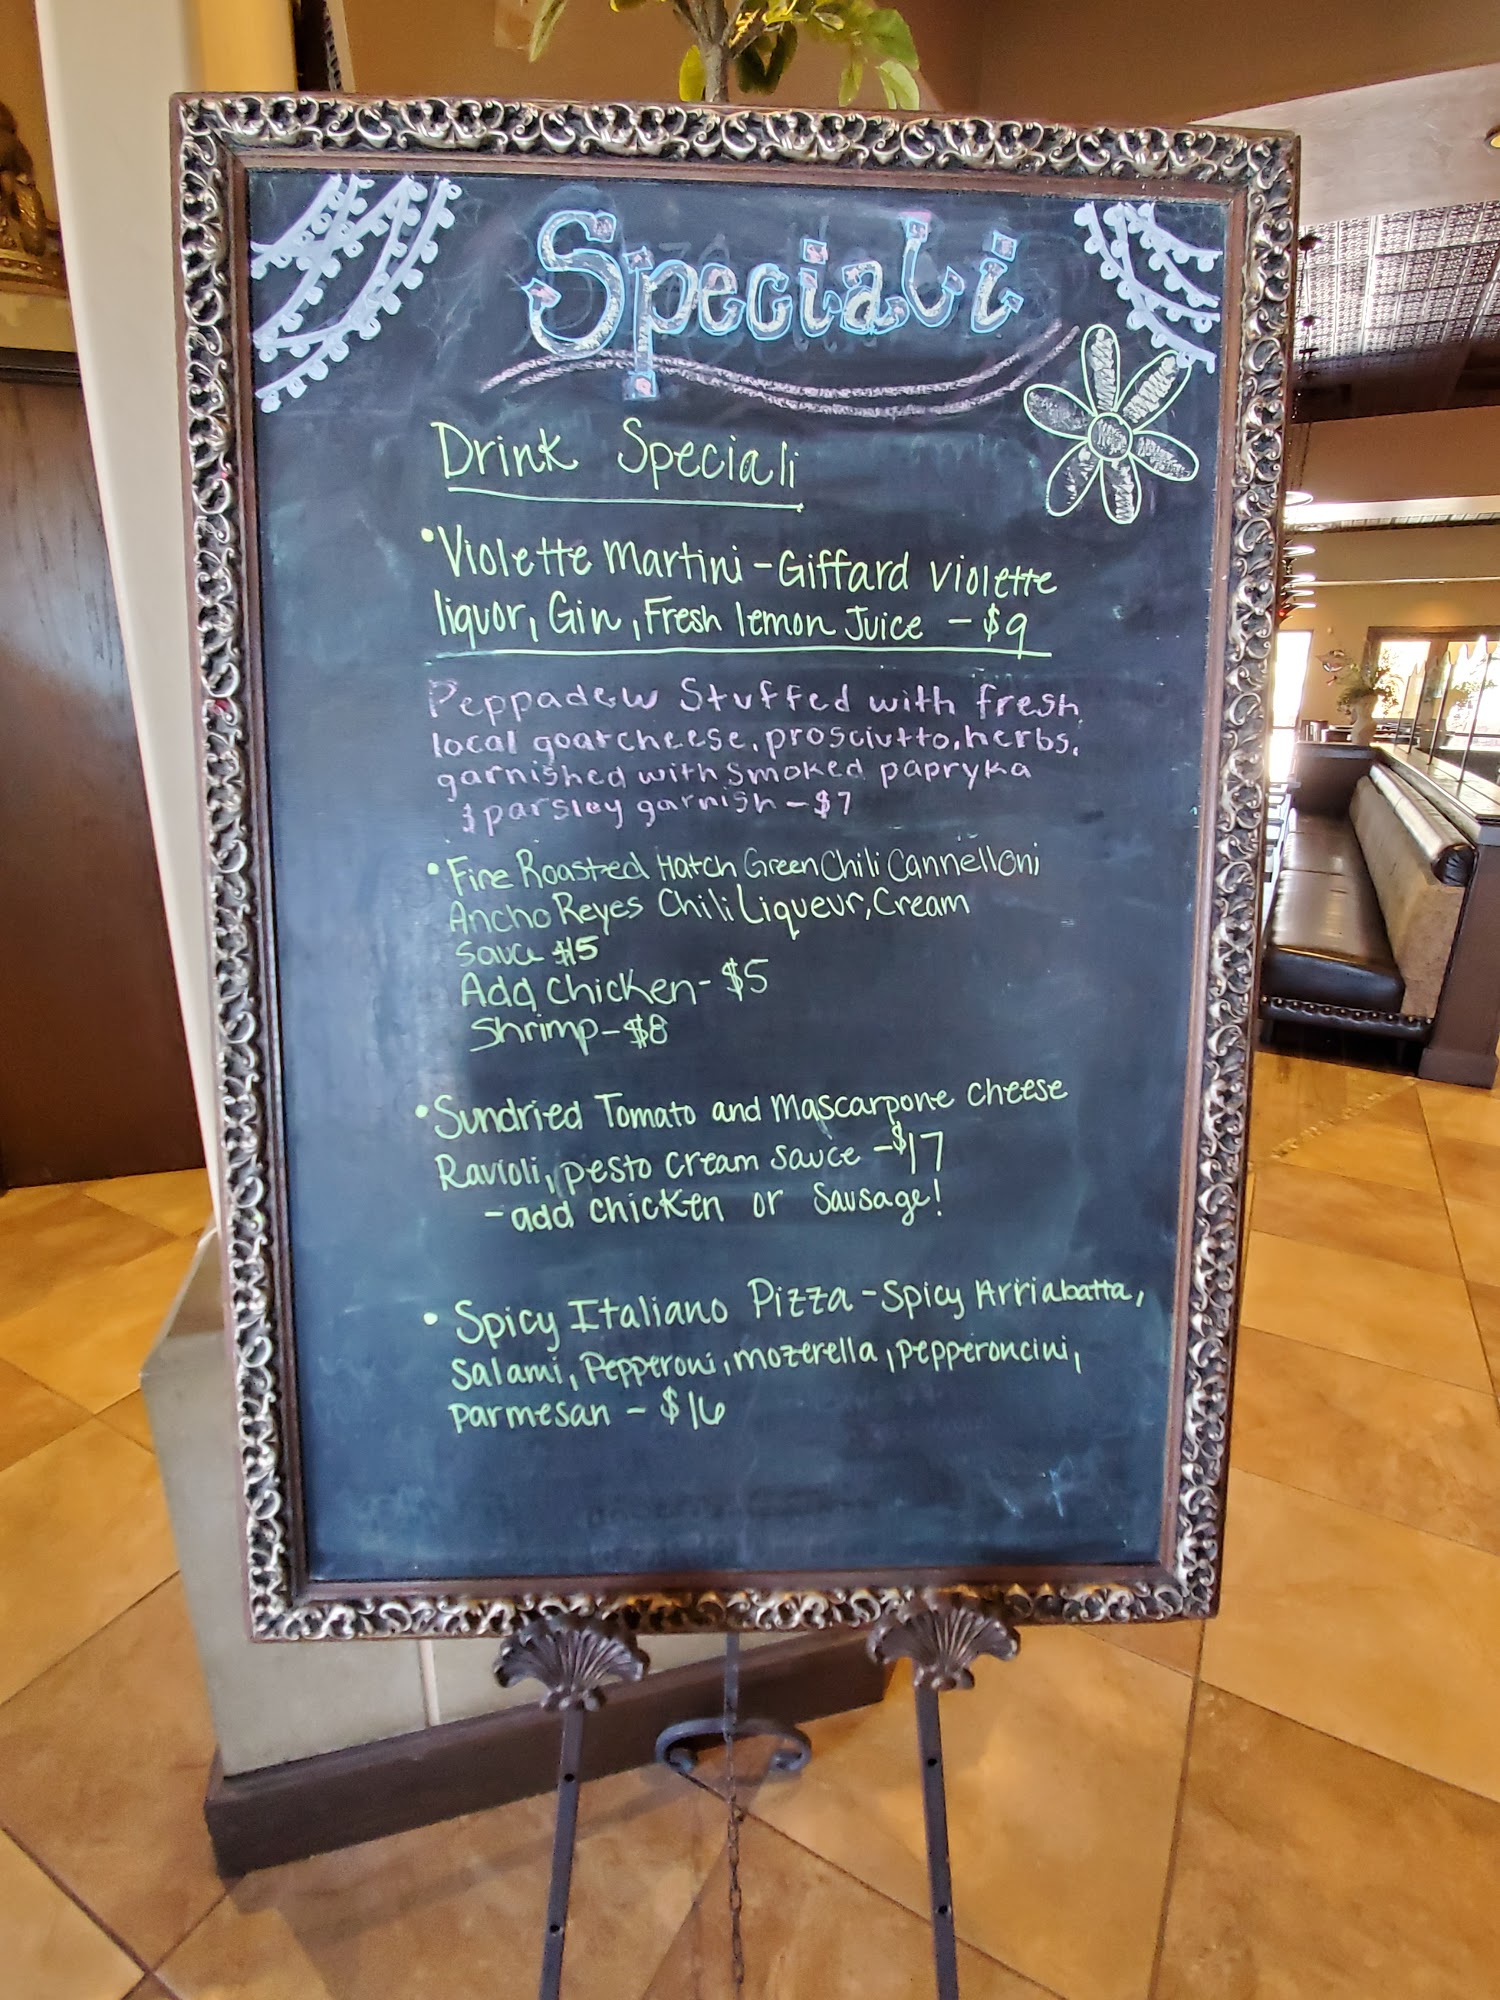 Speciali
Drink Speciali
• Violette martini - Giffard violette
liquor, Gin, Fresh lemon Juice - $9
Peppadew Stuffed with fresh
local goat cheese, prosciutto, herbs,
garnished with smoked papryka
& parsley garnish - $7
• Fire Roasted Hatch Green Chili Cannelloni
Ancho Reyes Chili Liqueur, Cream
sauce $15
Add chicken - $5
Shrimp - $8
• Sundried Tomato and Mascarpone cheese
Ravioli, pesto cream sauce - $17
- add chicken or Sausage!
• Spicy Italiano Pizza - Spicy Arriabatta,
Salami, Pepperoni, mozerella, pepperoncini,
parmesan - $16